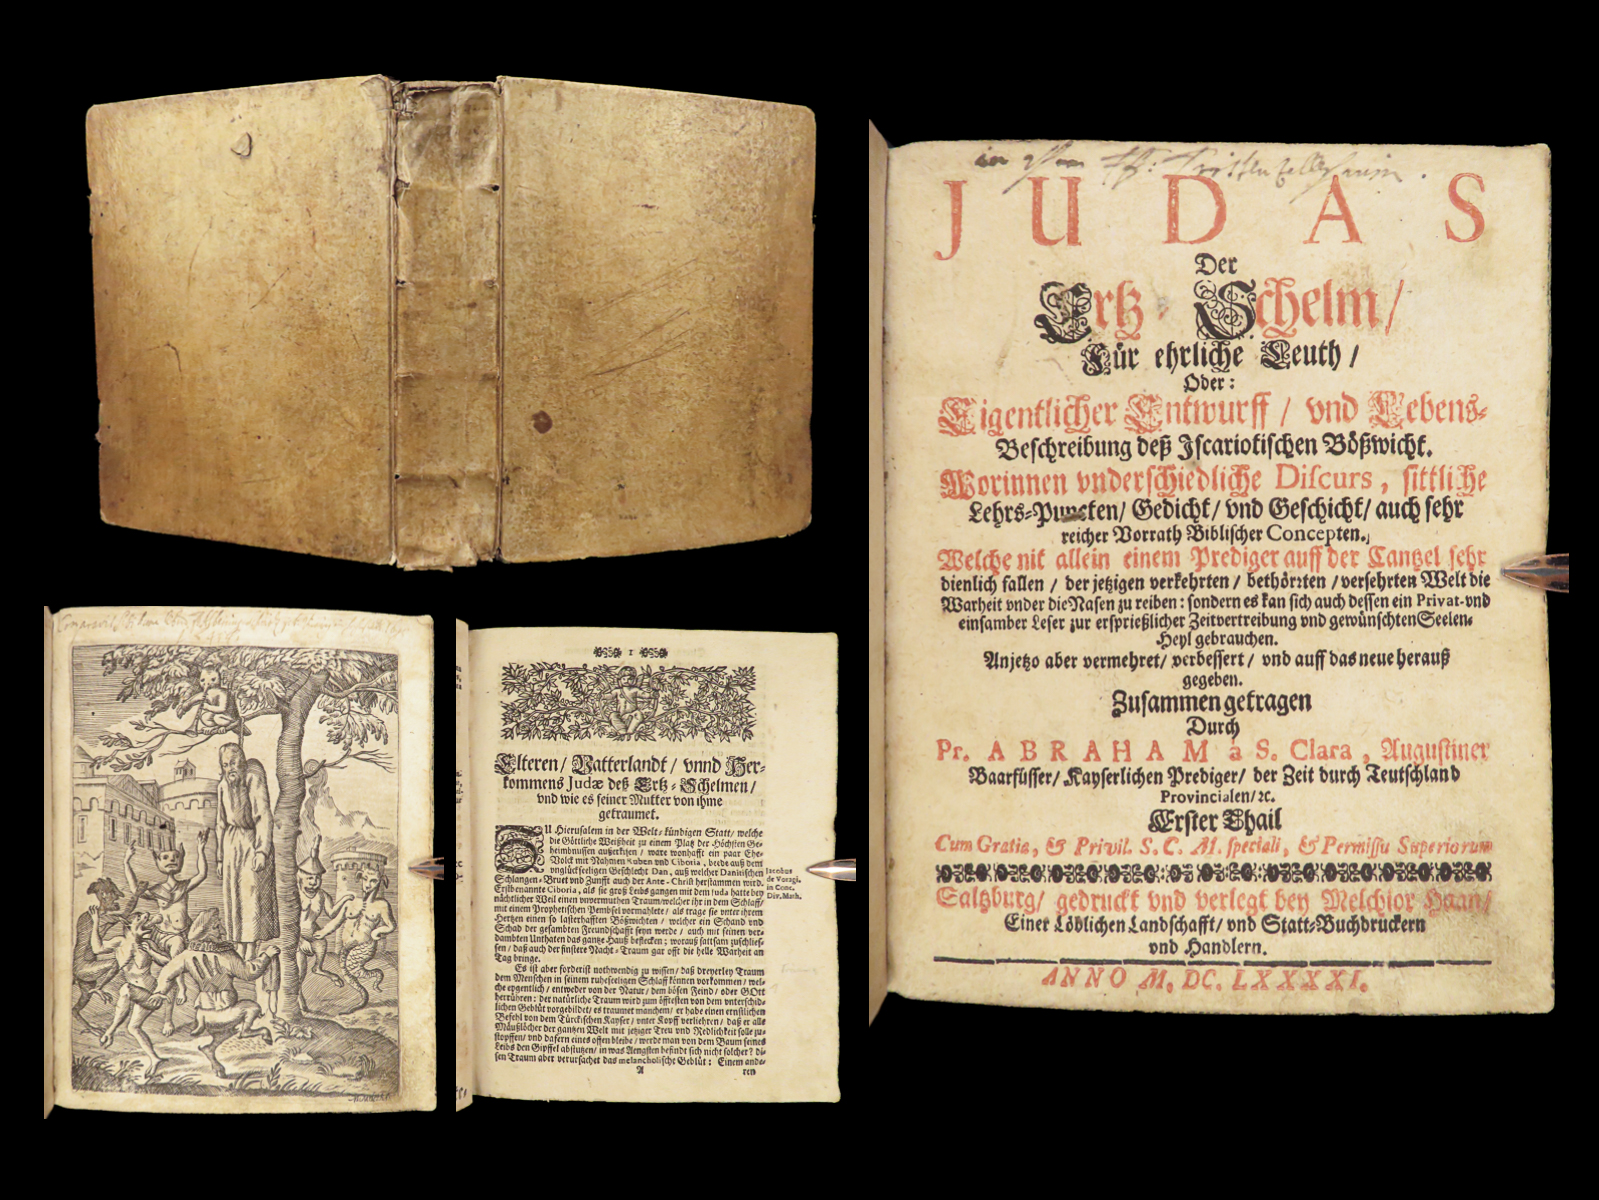 JUDAS
Der
Ertz-Schelm/
Für ehrliche Leuth/
Oder:
Eigentlicher Entwurff/ vnd Lebens-
Beschreibung deß Iscariotischen Bößwicht.
Worinnen vnderschiedliche Discurs, sittliche
Lehrs-Puncten/ Gedicht/ vnd Geschicht/ auch sehr
reicher Vorrath Biblischer Concepten.
Welche nit allein einem Prediger auff der Cantzel sehr
dienlich fallen/ der jetzigen verkehrten/ bethörrten/ versehrten Welt die
Warheit vnder die Nasen zu reiben: sondern es kan sich auch dessen ein Privat-vnd
einsamber Leser zur ersprießlicher Zeitvertreibung vnd gewünschten Seelen-
Heyl gebrauchen.
Anjetzo aber vermehret/ verbessert/ vnd auff das neue herauß
gegeben.
Zusammen getragen
Durch
Pr. ABRAHAM à S. Clara, Augustiner
Baarfüsser/ Kayserlichen Prediger/ der Zeit durch Teutschland
Provincialen/ ꝛc.
Erster Theil
Cum Gratia, & Privil. S. C. M. speciali, & Permissu Superiorum
Saltzburg/ gedruckt vnd verlegt bey Melchior Haan/
Einer Löblichen Landschafft/ vnd Statt-Buchdruckern
vnd Handlern.
ANNO M. DC. LXXXXI.
1
Elteren/ Vatterlandt/ vnnd Her-
kommens Judæ deß Ertz-Schelmen/
vnd wie es seiner Mutter von ihme
getraumet.
ZU Hierusalem in der Welt-kündigen Statt/ welche
die Göttliche Weißheit zu einem Platz der Höchsten Ge-
heimbnussen außerkisen/ ware wonhafft ein paar Ehe-
Volck mit Nahmen Ruben vnd Ciboria, beede auß dem
vnglückseeligen Geschlecht Dan, auß welcher Danitischen
Schlangen-Bruet vnd Zunfft auch der Ante-Christ herstammen wird.
Erstbenannte Ciboria, als sie groß Leibs gangen mit dem Juda hatte bey
nächtlicher Weil einen vnvermuthen Traum/welcher ihr in dem Schlaff/
mit einem Prophetischen Pembsel vormahlete/ als trage sie vnter ihrem
Hertzen einen so lasterhafften Bößwichten/ welcher ein Schand vnd
Schad der gesambten Freundschafft seyn werde/ auch mit seinen ver-
dambten Unthaten das gantze Hauß beflecken; worauß sattsam zuschlies-
sen/ daß auch der finstere Nacht-Traum gar offt die helle Warheit an
Tag bringe.
Es ist aber forderist nothwendig zu wissen/ daß dreyerley Traum
dem Menschen in seinem ruheseeligen Schlaff können vorkommen/ wel-
che eygentlich/ entweder von der Natur/ dem bösen Feind/ oder GOtt
herrühren: der natürliche Traum wird zum öfftesten von dem vnterschid-
lichen Geblüt vorgebildet/ es traumet manchem/ er habe einen ernstlichen
Befehl von dem Türckischen Kayser/ vnter Kopff verliehren/ daß er alle
Mäußlöcher der gantzen Welt mit jetziger Treu vnd Redlichkeit solle zu-
stopffen/ vnd dafern eines offen bleibe/ werde man von dem Baum seines
Leibs den Gipffel abstutzen/ in was Aengsten befindt sich nicht solcher? di-
sen Traum aber verursachet das melancholischt Geblüt: Einem ande-
A
ren
Jacobus
de Voragi.
in Conc.
Div. Math.